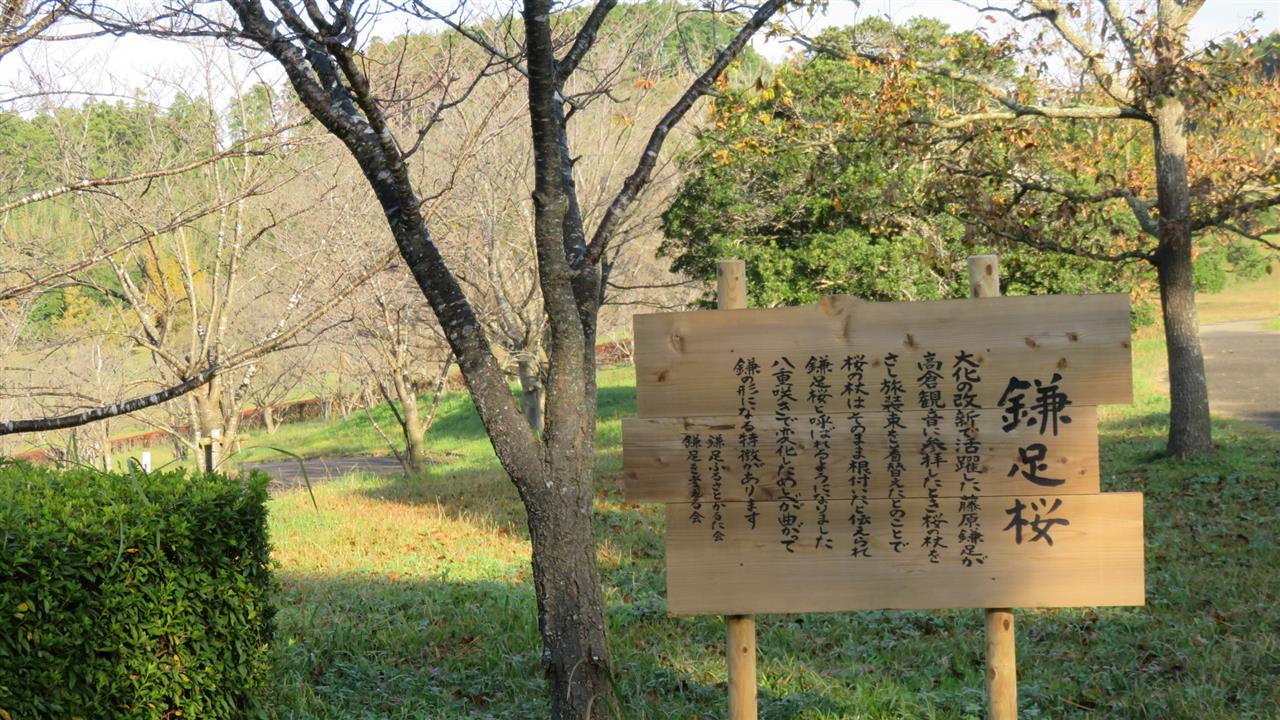 鎌足桜
大化の改新で活躍した藤原鎌足が
高倉観音に参拝したとき桜の杖を
さし旅装束を着替えたとのことで
桜の杖はそのまま根付いたと伝えられ
鎌足桜と呼ばれるようになりました
八重咲きで突化ためしべが曲がって
鎌の形になる特徴があります
鎌足ふるさとかるた会
鎌足を考える会